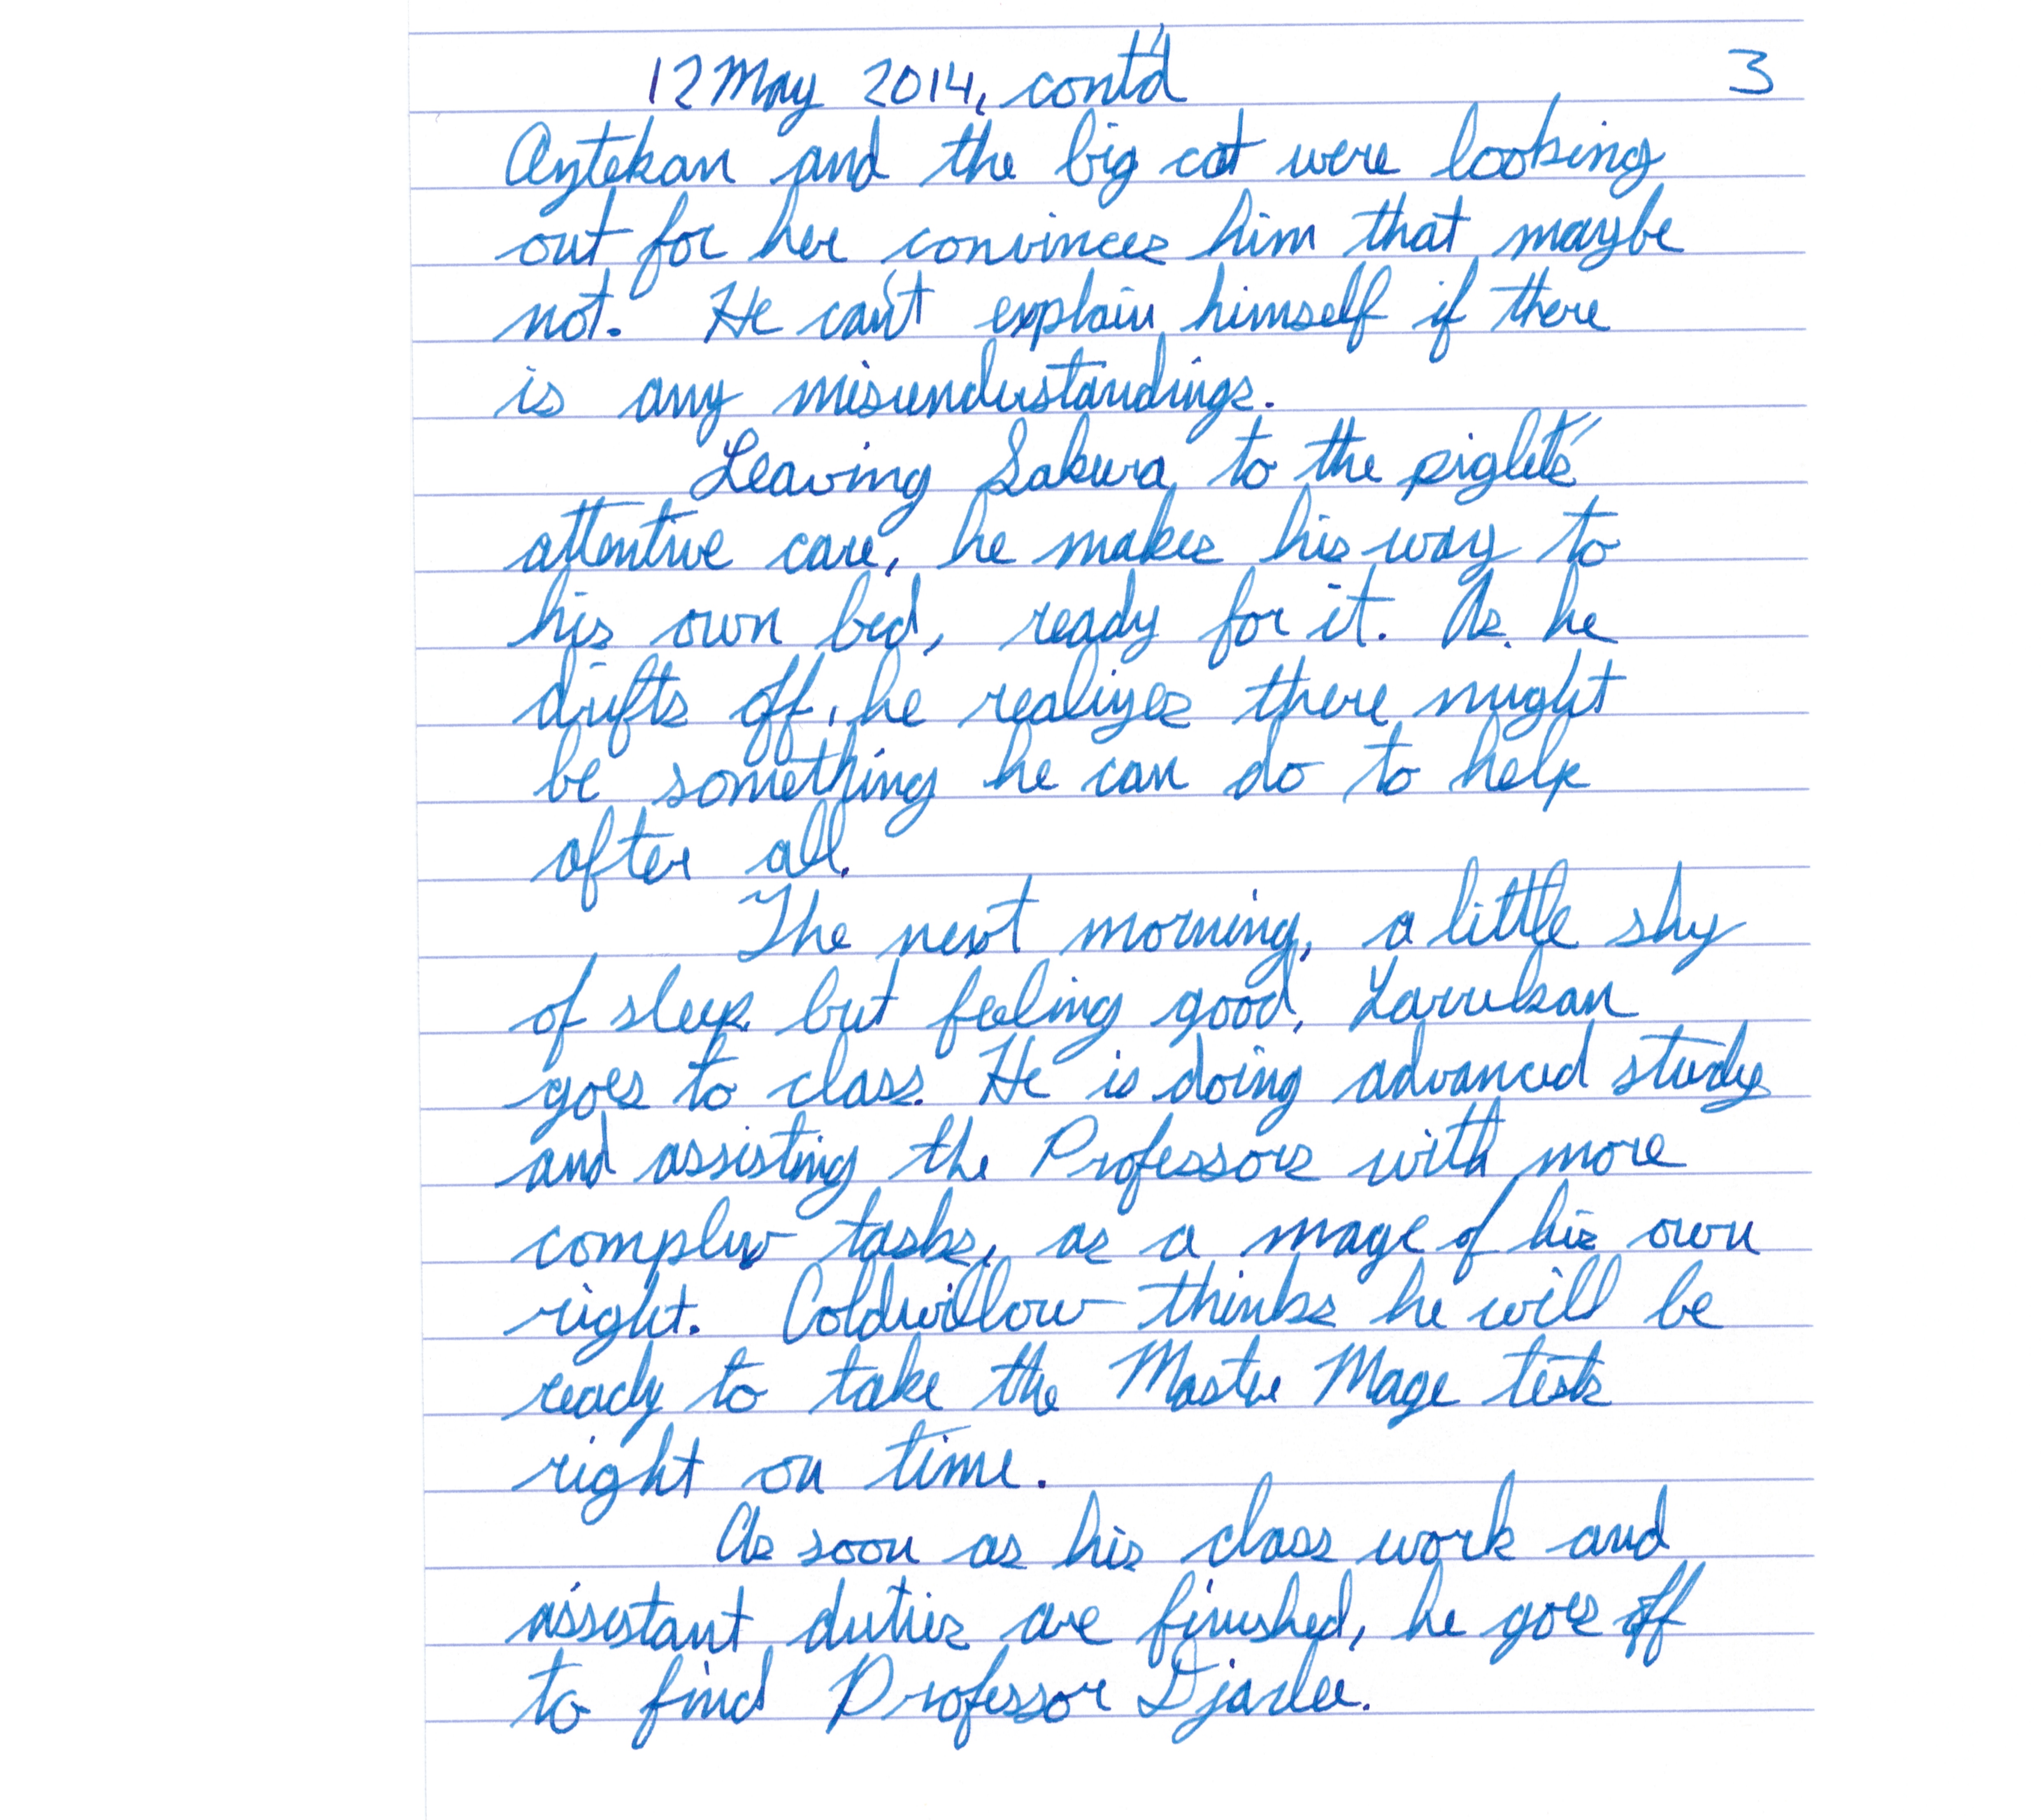 12 May 2014, cont'd 3
Aztekan and the big cat were looking
out for her convinces him that maybe
not. He can't explain himself if there
is any misunderstandings.
Leaving Sakura to the piglets'
attentive care, he makes his way to
his own bed, ready for it. As he
drifts off, he realizes there might
be something he can do to help
after all.
The next morning, a little shy
of sleep but feeling good, Larrekan
goes to class. He is doing advanced study
and assisting the Professors with more
complex tasks, as a mage of his own
right. Coldwillow thinks he will be
ready to take the Master Mage tests
right on time.
As soon as his class work and
assistant duties are finished, he goes off
to find Professor Djarlee.